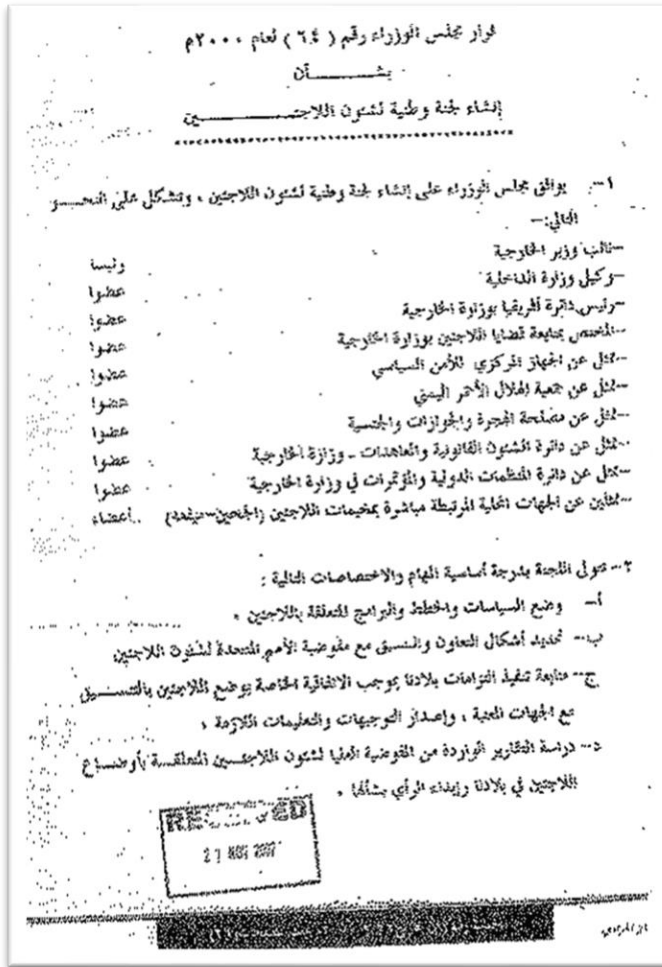 قرار مجلس الوزراء رقم ( ٦٤ ) لعام ٢٠٠٠م
بشـــــــأن
إنشاء لجنة وطنية لشئون اللاجئـــــــــين
١- يوافق مجلس الوزراء على إنشاء لجنة وطنية لشئون اللاجئين ، وتشكل على النحـــو
التالي:-
-نائب وزير الخارجية رئيسا
-وكيل وزارة الداخلية عضوا
-رئيس دائرة أفريقيا بوزارة الخارجية عضوا
-المختص بمتابعة قضايا اللاجئين بوزارة الخارجية عضوا
-ممثل عن الجهاز المركزي للأمن السياسي عضوا
-ممثل عن جمعية الهلال الأحمر اليمني عضوا
-ممثل عن مصلحة الهجرة والجوازات والجنسية عضوا
-ممثل عن دائرة الشئون القانونية والمعاهدات - وزارة الخارجية عضوا
-ممثل عن دائرة المنظمات الدولية والمؤتمرات في وزارة الخارجية عضوا
-ممثلين عن الجهات المحلية المرتبطة مباشرة بمخيمات اللاجئين أعضاء
٢- تتولى اللجنة بدرجة أساسية المهام والاختصاصات التالية :
أ- وضع السياسات والخطط والبرامج المتعلقة باللاجئين .
ب- تحديد أشكال التعاون والتنسيق مع مفوضية الأمم المتحدة لشئون اللاجئين
ج- متابعة تنفيذ التزامات بلادنا بموجب الاتفاقية الخاصة بوضع اللاجئين بالتنســـيق
مع الجهات المعنية ، وإصدار التوجيهات والتعليمات اللازمة .
د- دراسة التقارير الواردة من المفوضية العليا لشئون اللاجئـــين المتعلقـــة بأوضـــاع
اللاجئين في بلادنا وإبداء الرأي بشأنها .